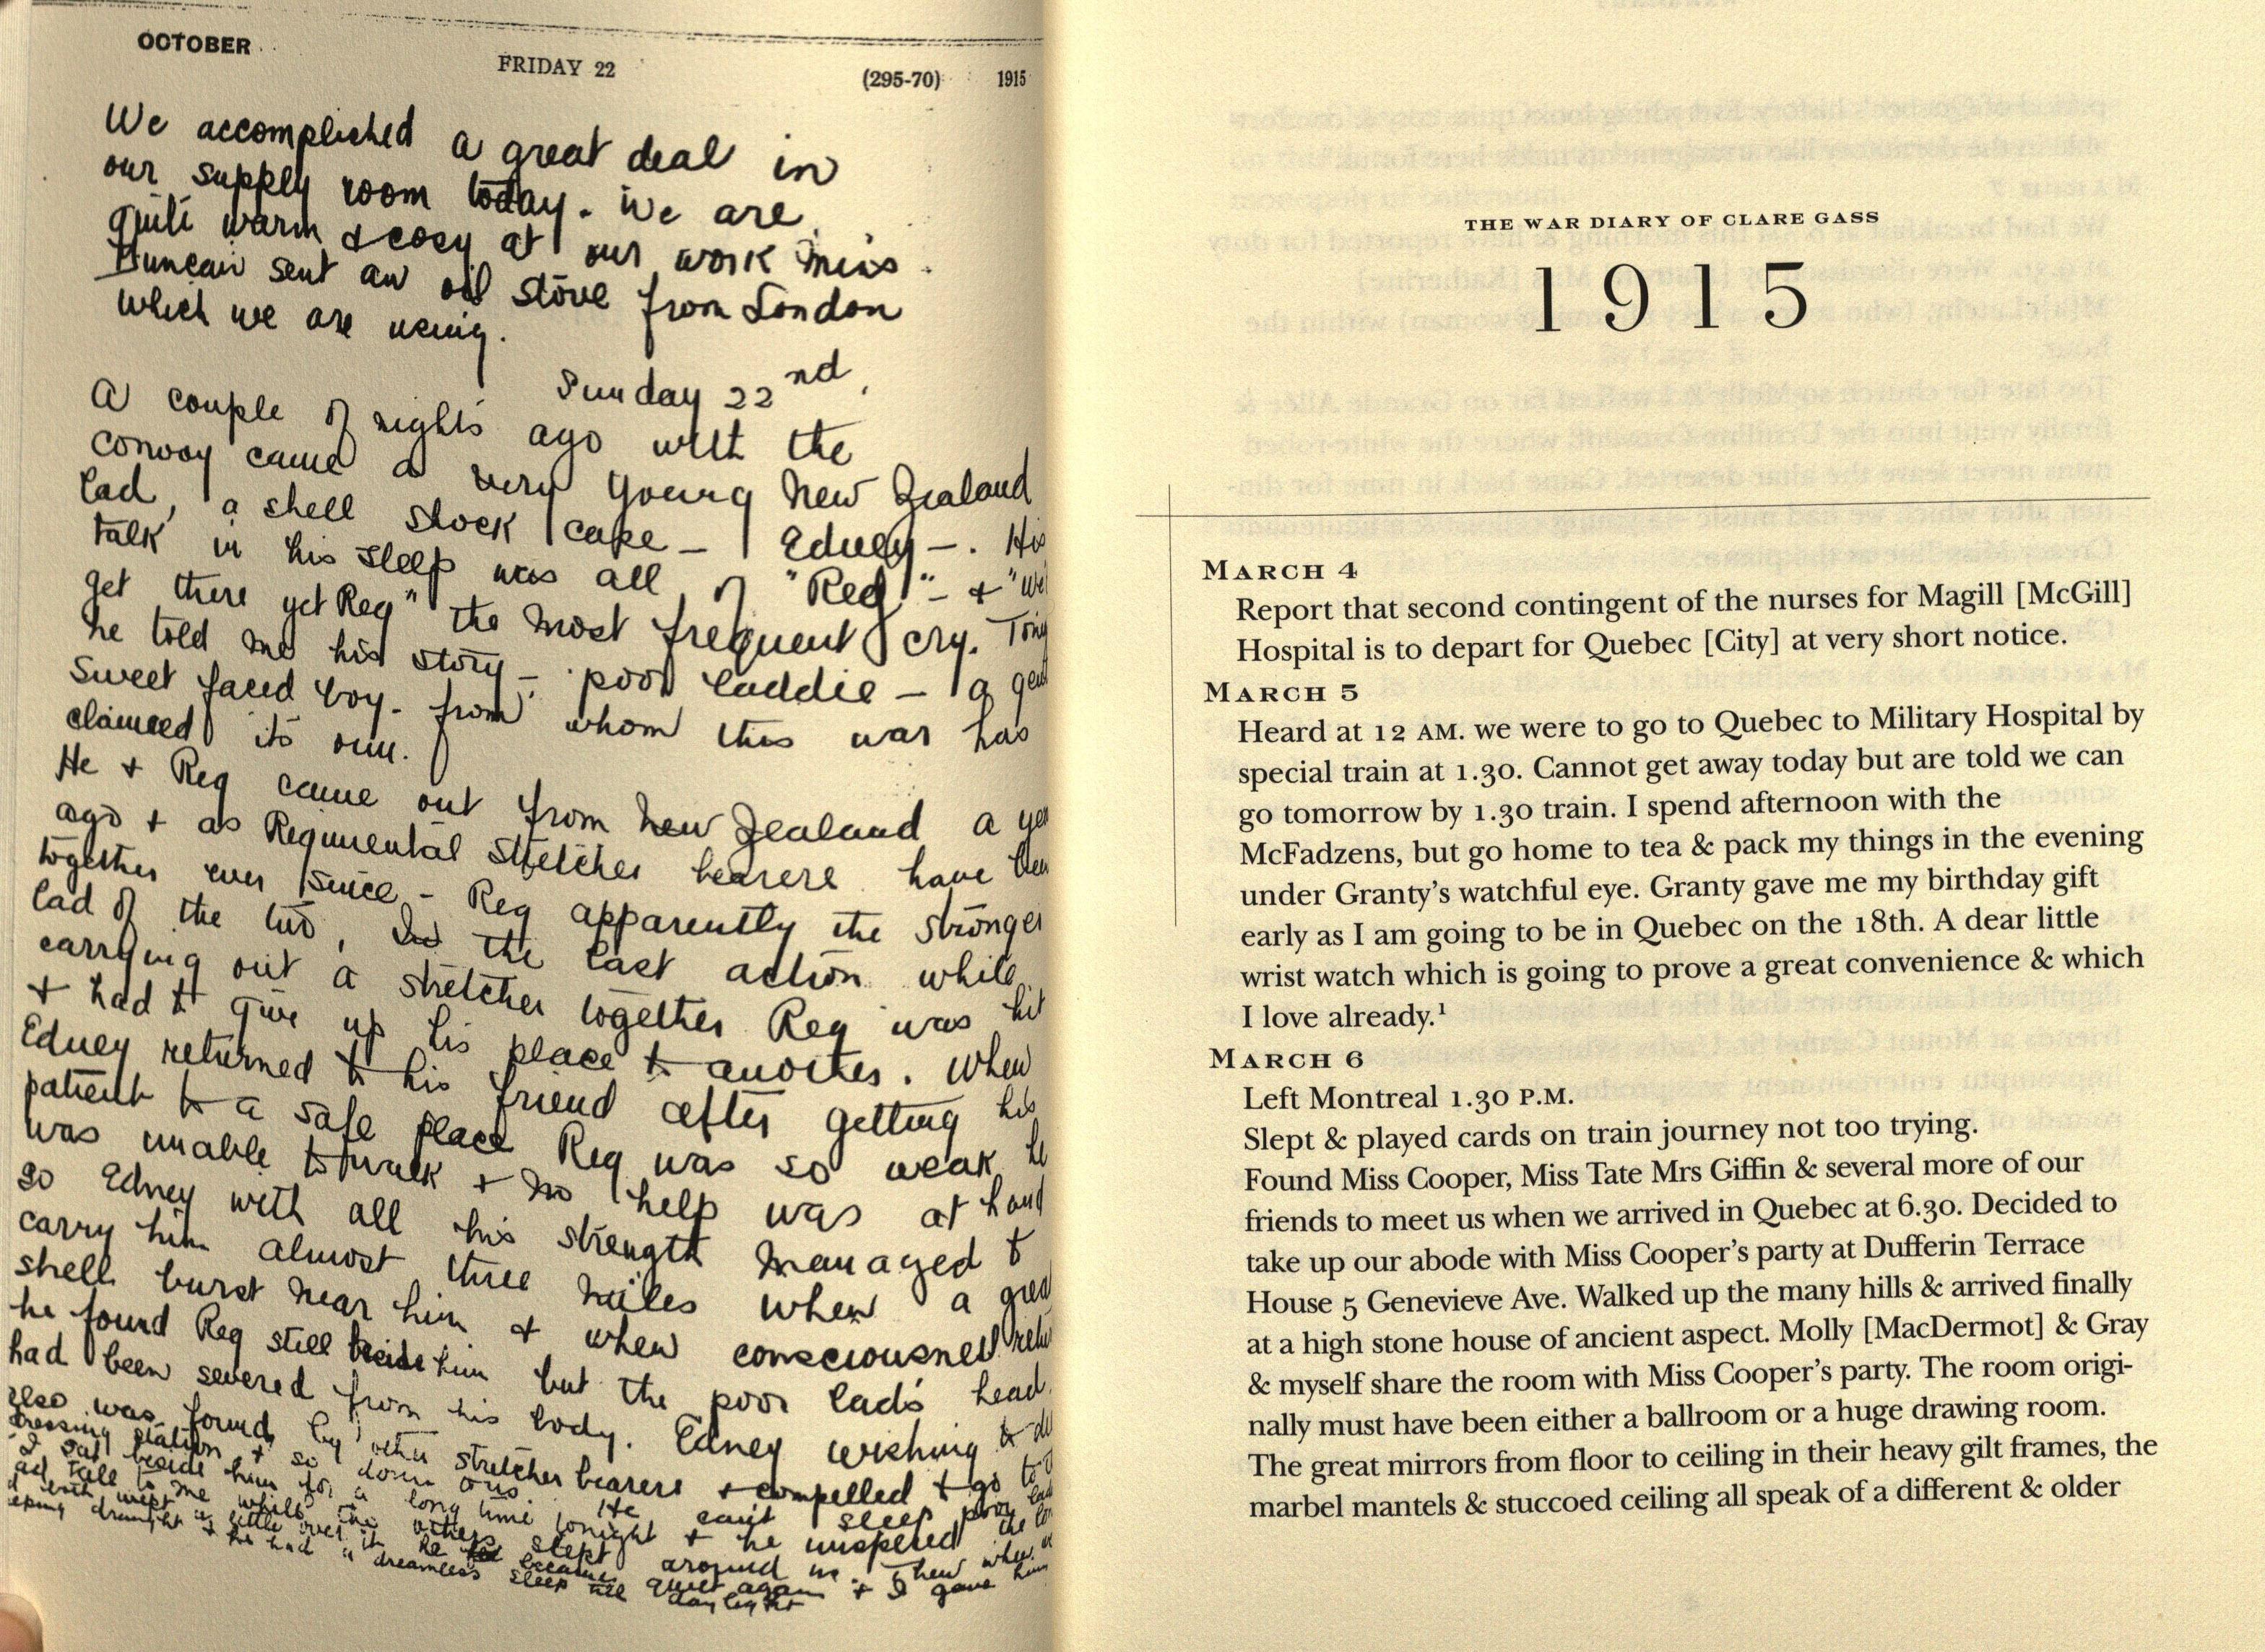 OCTOBER
FRIDAY 22
(295-70) 1915
We accomplished a great deal in
our supply room today. We are
quite warm & cosy at our work Miss
Duncan sent an oil stove from London
which we are using.
Sunday 22nd.
A couple of nights ago with the
convoy came a very young New Zealand
lad, a shell shock case – Edney –. His
talk in his sleep was all of "Reg" – & "We'll
get there yet Reg" the most frequent cry.
he told me his story – poor laddie – a
sweet faced boy. from whom this war has
claimed its own.
He & Reg came out from New Zealand a
ago & as Regimental stretcher bearers have
together ever since – Reg apparently the stronger
lad of the two, In the last action while
carrying out a stretcher together Reg was hit
& had to give up his place to another. When
Edney returned to his friend after getting his
patient to a safe place Reg was so weak he
was unable to walk & no help was at hand
so Edney with all his strength managed to
carry him almost three miles when a
shell burst near him & when consciousness
he found Reg still beside him but the poor lad's head
had been severed from his body. Edney wishing to
also was found by other stretcher bearers & compelled to go to
dressing station & so down to us. He can't sleep poor
I sat beside him for a long time tonight & he whispered the
tale to me while the others slept around us. Then when
both wept a little over it he became quiet again & I gave him
draught & he had a dreamless sleep till daylight
THE WAR DIARY OF CLARE GASS
1915
MARCH 4
Report that second contingent of the nurses for Magill [McGill]
Hospital is to depart for Quebec [City] at very short notice.
MARCH 5
Heard at 12 AM. we were to go to Quebec to Military Hospital by
special train at 1.30. Cannot get away today but are told we can
go tomorrow by 1.30 train. I spend afternoon with the
McFadzens, but go home to tea & pack my things in the evening
under Granty's watchful eye. Granty gave me my birthday gift
early as I am going to be in Quebec on the 18th. A dear little
wrist watch which is going to prove a great convenience & which
I love already.¹
MARCH 6
Left Montreal 1.30 P.M.
Slept & played cards on train journey not too trying.
Found Miss Cooper, Miss Tate Mrs Giffin & several more of our
friends to meet us when we arrived in Quebec at 6.30. Decided to
take up our abode with Miss Cooper's party at Dufferin Terrace
House 5 Genevieve Ave. Walked up the many hills & arrived finally
at a high stone house of ancient aspect. Molly [MacDermot] & Gray
& myself share the room with Miss Cooper's party. The room origi-
nally must have been either a ballroom or a huge drawing room.
The great mirrors from floor to ceiling in their heavy gilt frames, the
marbel mantels & stuccoed ceiling all speak of a different & older